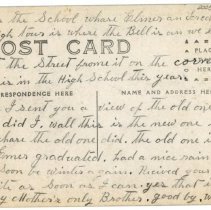 is the School whare Elmer an
high tour is where the Bell is an we s
POST CARD
the Street frome it on the corner
is in the High School this year
CORRESPONDENCE HERE
NAME AND ADDRESS HERE
I sent you a view of the old one
did I. wall this is the new one
share the old one did. the old one is
graduated. had a nice rain
Soon be winter a gain. Recived your
as Soon as I can, yes that is
Mother's only Brother, good by, w